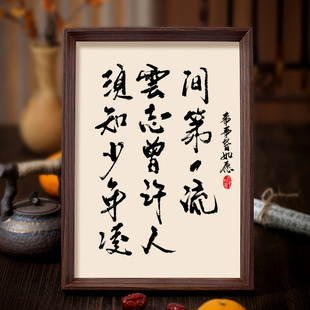 须知少年凌
雲志曾许人
间第一流
事事皆如愿